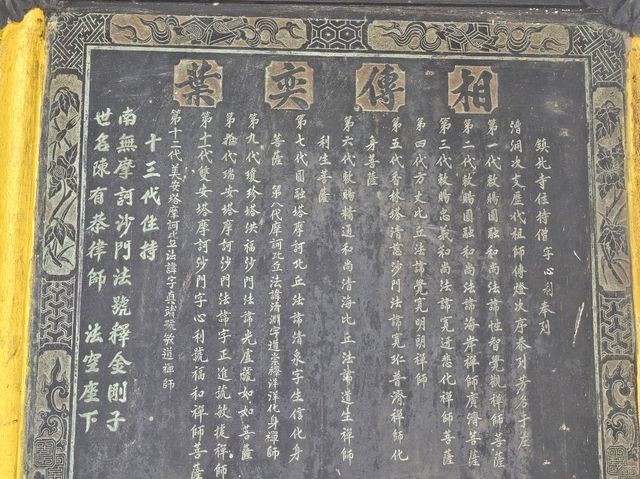 相傳奕葉
鎮北寺住持僧字心利奉列
清洞次支歷代祖師傳燈次序奉列芳名于左
第一代敕賜圓融和尚法諱性智覺觀禪師菩薩
第二代敕賜圓融和尚法諱海岸禪師廣濟菩薩
第三代敕賜忠義和尚法諱寬迓慈化禪師菩薩
第四代方丈比丘法諱覺寬明朗禪師
第五代香林塔清慈沙門法諱寬弘普濟禪師化
身菩薩
第六代敕賜精通和尚清海比丘法諭道生禪師
利生菩薩
第七代圓融塔摩訶比丘法諱清泉字生信化身
菩薩 第八代摩訶比丘法諱清淵字道崇禪洋洋化身禪師
第九代瓊珍塔洪福沙門法諱光盧嚴如如菩薩
第拾代瑞安塔摩訶沙門法諱字正進號敏捷禪師
第十一代雙安塔摩訶沙門字心利號福和禪師菩薩
第十二代美安塔摩訶比丘法諱字真靖號敏道禪師
十三代住持
南無摩訶沙門法號釋金剛子
世名陳有恭律師 法空座下